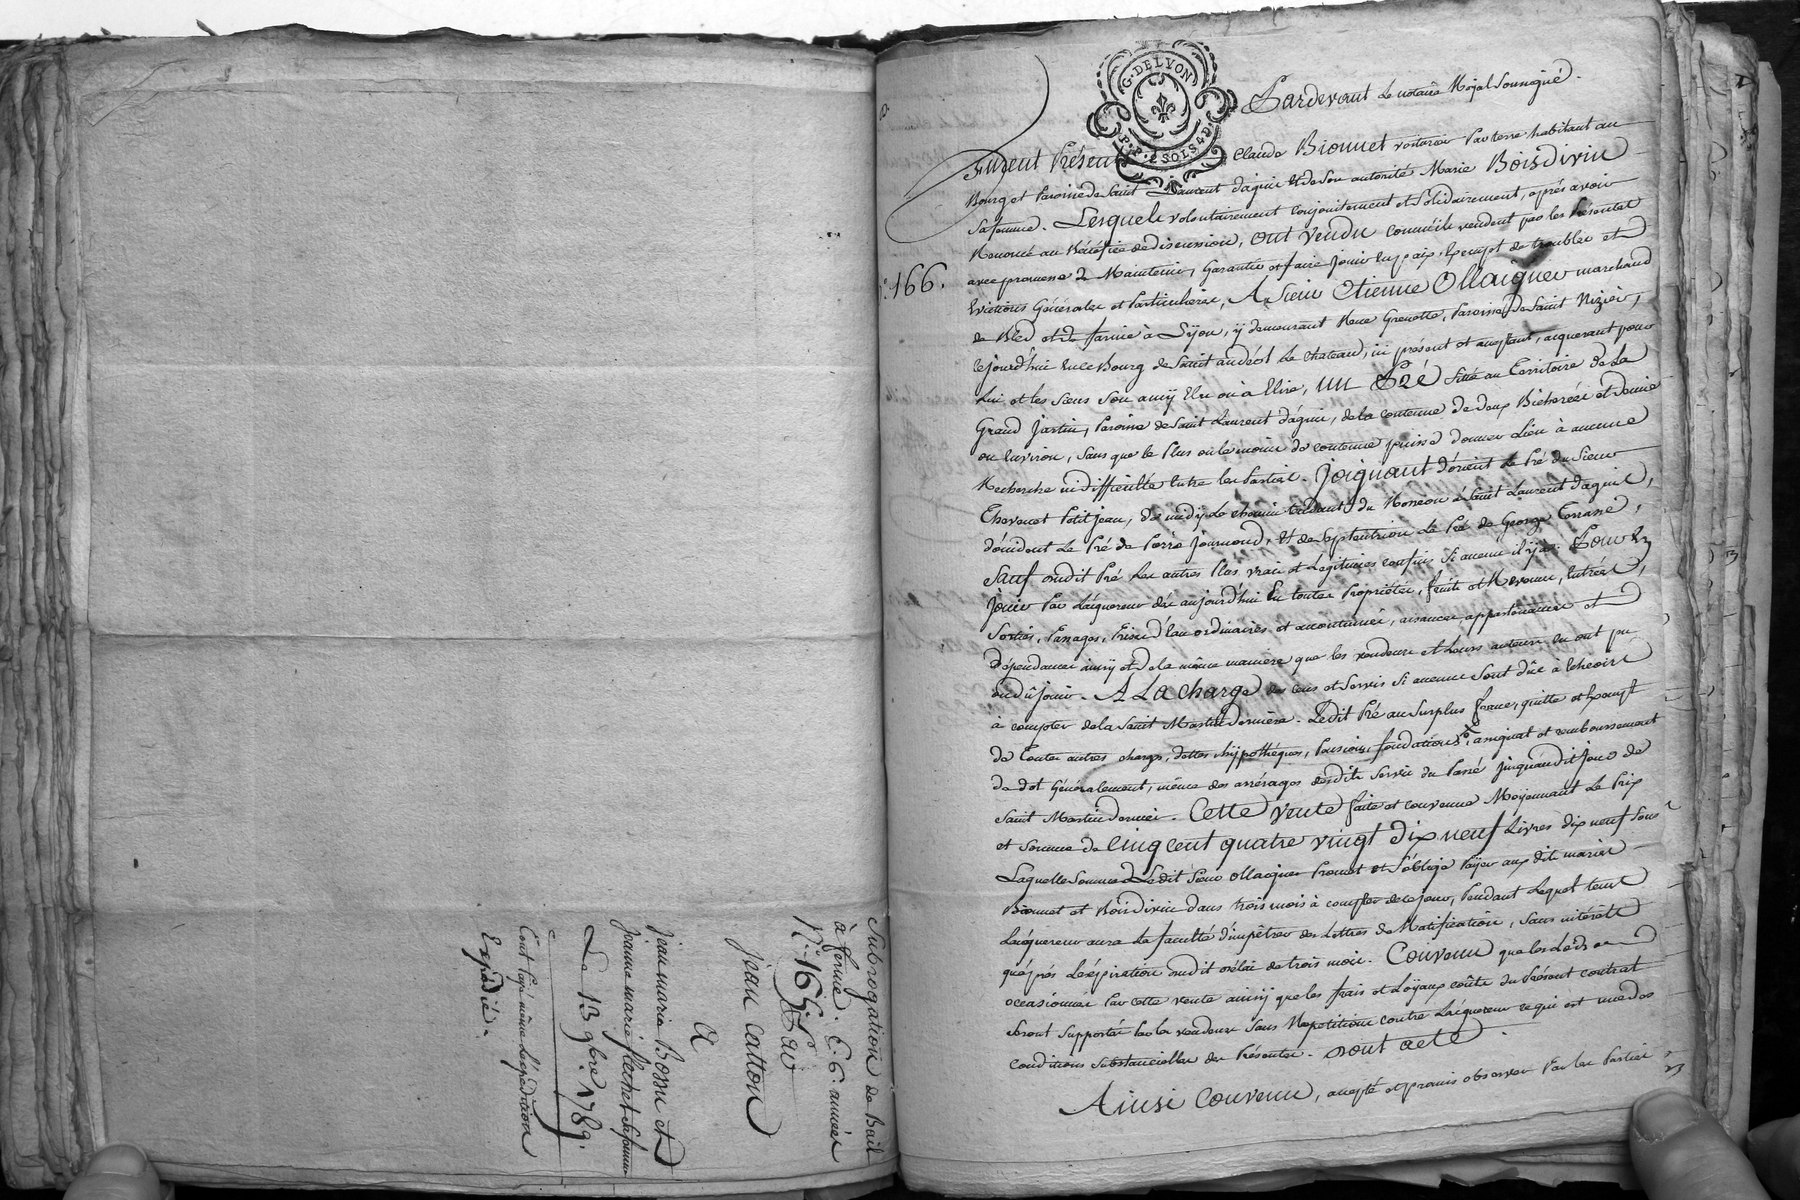 Subrogation de Bail
à ferme. C. 6. années
N.° 165. Par
Jean Catton
A
Jean marie Bossu et
Jeanne marie flechet sa femme
Le 13 9bre. 1789.
Cont. Payé même L'expédition
Expédié.
G. DE LYON
P. P. 2 SOLS 4 D.
Pardevant Le notaire Royal Soussigné.
Furent Présents Claude Bionnet voiturier Par terre habitant au
Bourg et Paroisse de Saint Laurent d'agni et de Son autorité Marie Boisdivin
Sa femme. Lesquels volontairement conjointement et Solidairement, après avoir
Renoncé au Bénéfice de discussion, ont vendu comme ils vendent par les Présentes
N.° 166.
avec promesse de Maintenir, Garantir et faire Jouir en paix, Exempt de troubles et
Evictions Générales et Particulieres, A Sieur Etienne Ollaignier marchand
de Bled et de farine à Lyon, y demeurant Rue Grenette, Paroisse de Saint Nizier,
Cejourd'hui en ce Bourg de Saint andéol Le Chateau, ici présent et acceptant, acquerant pour
Lui et les Siens Son amy Elu ou à Elire, un Pré Situé au Territoire de La
Grand Jartin, Paroisse de Saint Laurent d'agni, de la contenue de deux Bicherées et demie
ou Environ, Sans que le Plus ou le moins de contenue puisse donner Lieu à aucune
Recherche ni difficulté Entre les Parties. Joignant d'orient le Pré du Sieur
Thevenet Petit jean, de midy Le chemin tendant du Monceau à Saint Laurent d'agni,
d'occident Le Pré de Pierre Journoud, et de Septentrion Le Pré de George Terrasse,
Sauf audit Pré Les autres Plus vrais et Legitimes confins Si aucuns il y a. Pour En
Jouir Par L'acquereur dès aujourd'hui En toutes Propriétés, fruits et Revenus, Entrées,
Sorties, Passages, Prises d'Eau ordinaires et accoutumées, aisances appartenances et
Dépendances ainsy et de la même maniere que les vendeurs et Leurs auteurs en ont pu
ou dû jouir. A La charge des cens et Servis Si aucuns Sont dûs à Echeoir
à compter de la Saint Martin derniere. Ledit Pré au Surplus franc, quitte et Exempt
de Toutes autres charges, dettes, hypothèques, Pensions, fondations, assignat et remboursement
de dot Généralement, même des arrérages desdits Servis du Passé jusqu'audit jour de
Saint Martin dernier. Cette vente faite et convenue Moyennant Le Prix
et Somme de Cinq cent quatre vingt dix neuf Livres dix neuf Sous
Laquelle Somme Ledit Sieur Ollaignier Promet et S'oblige Payer aux dits mariés
Bionnet et Boisdivin dans trois mois à compter de ce jour, Pendant Lequel tems
L'acquereur aura La faculté d'impétrer des Lettres de Ratification, Sans intérêts
qu'après L'expiration dudit délai de trois mois. Convenu que les Lods
occasionnés Par cette vente ainsy que les frais et Loyaux coûts du Présent contrat
Seront Supportés Par les vendeurs Sans Répetition contre L'acquereur ce qui est une des
conditions Substancielles des Présentes. Dont acte.
Ainsi Convenu, accepté et promis observer Par les Parties